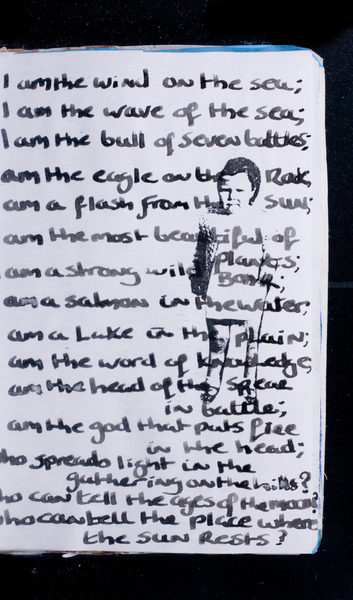 I am the wind on the sea;
I am the wave of the sea;
I am the bull of seven battles;
am the eagle on the Rock;
am a flash from the Sun;
am the most beautiful of
Plants;
am a strong wild Boar;
am a salmon in the water;
am a Lake in the plain;
am the word of knowledge;
am the head of the spear
in battle;
am the god that puts fire
in the head;
ho spreads light in the
gathering on the hills?
ho can tell the ages of the moon?
ho can tell the place where
the sun Rests?